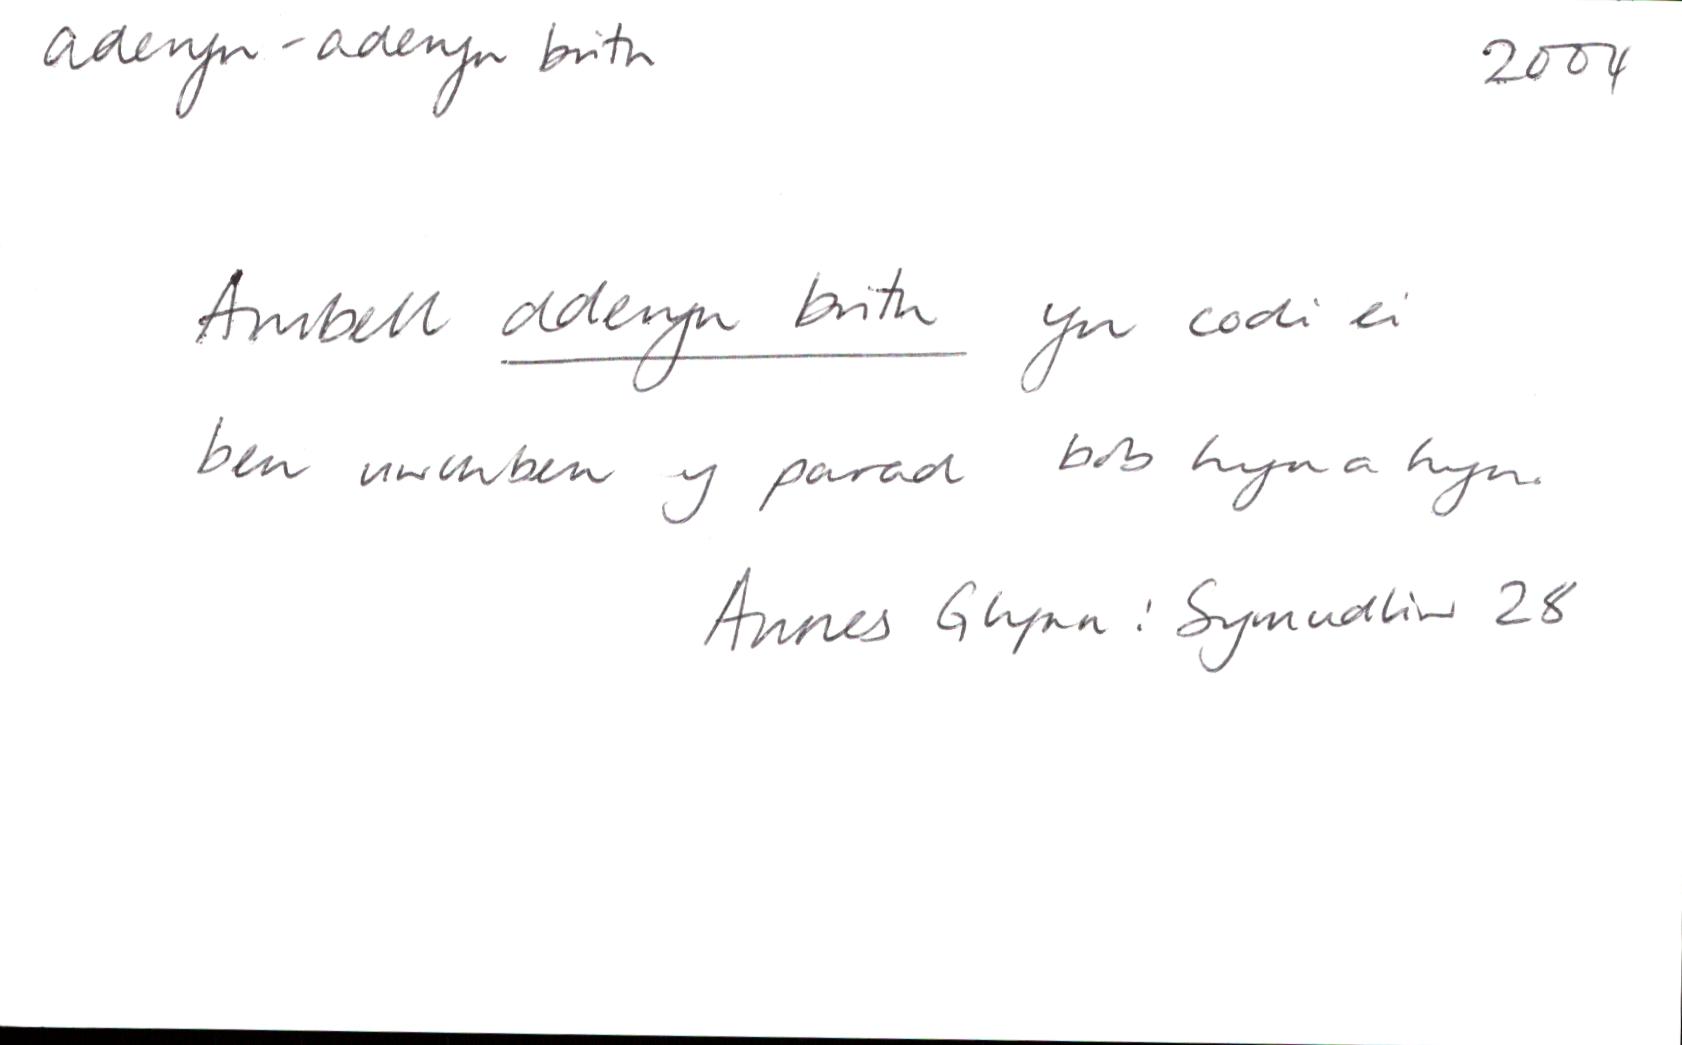 aderyn - aderyn brith 2004
Ambell dderyn brith yn codi ei
ben uwchben y parad bob hyn a hyn.
Annes Glynn: Symudliw 28